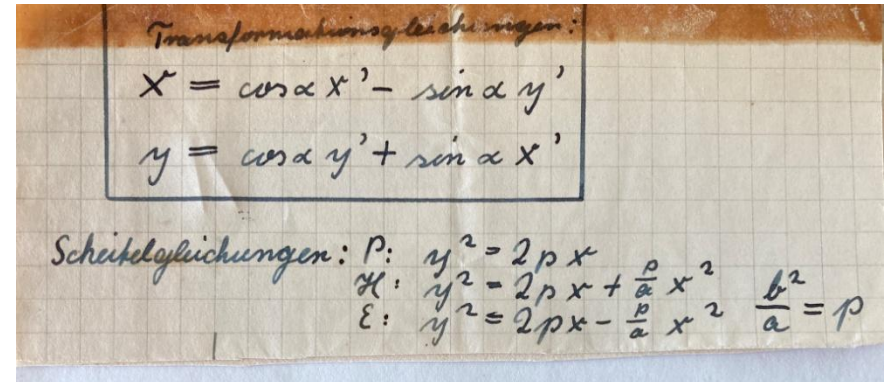 Transformationsgleichungen:
x = cosα x' - sin α y'
y = cosα y' + sin α x'
Scheitelgleichungen: P: y² = 2px
H: y² = 2px + p/a x²
E: y² = 2px - p/a x² b²/a = p